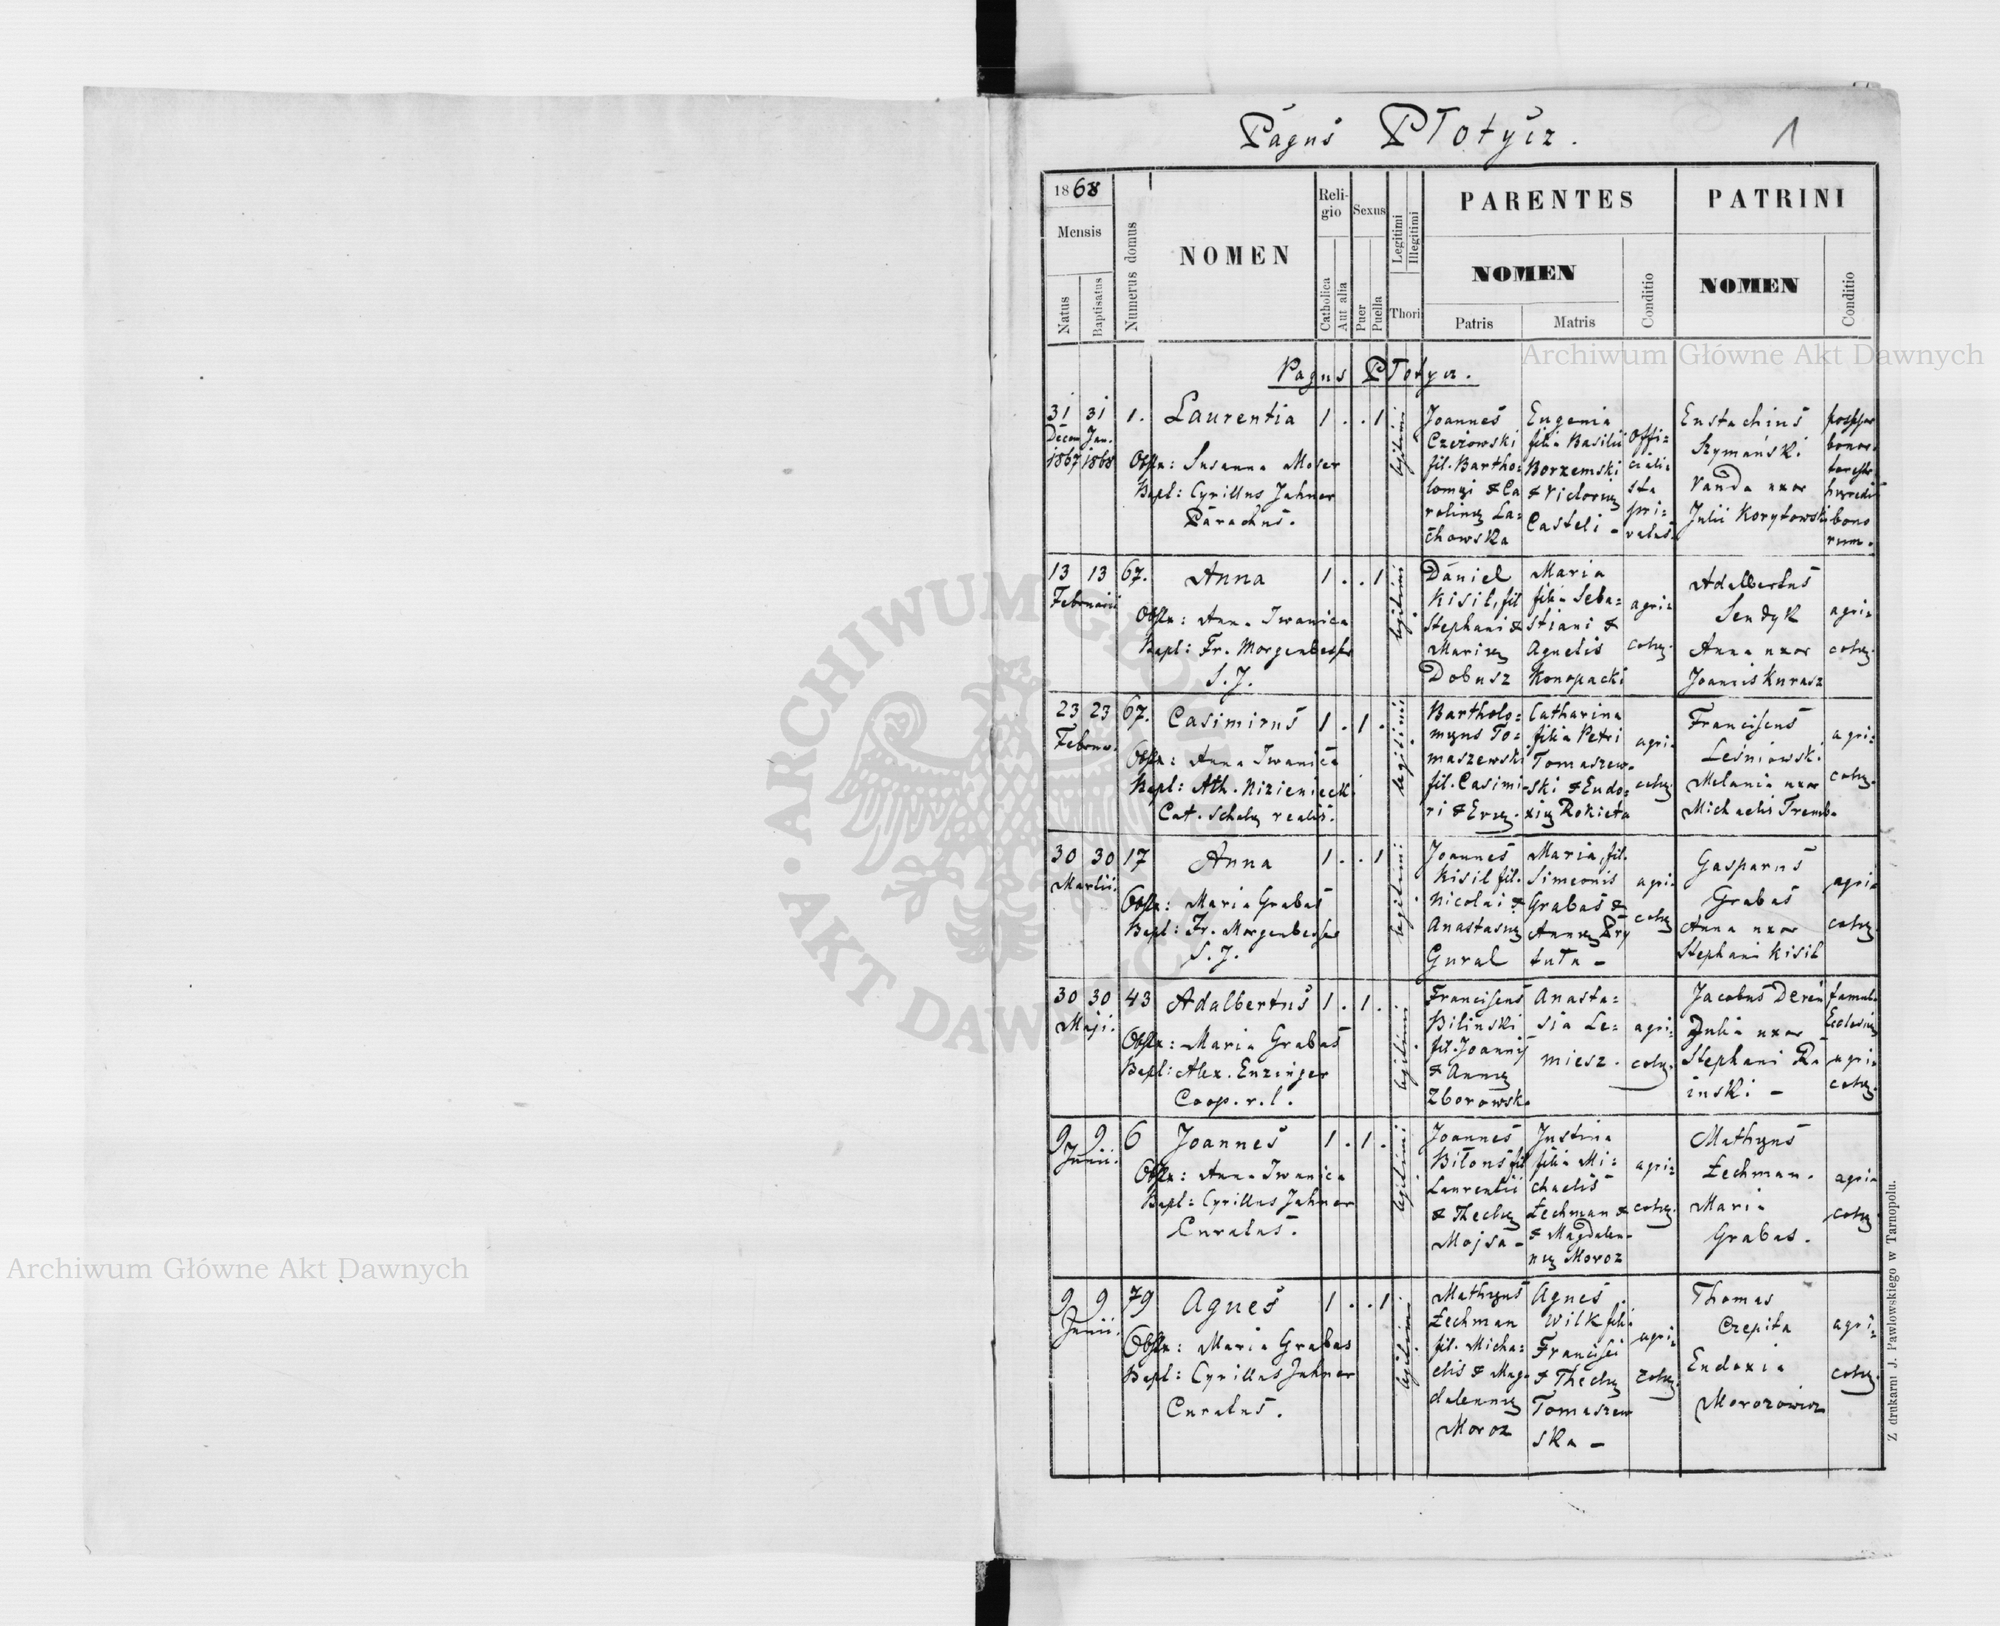 Pagus Płotycz.
1
1868
Mensis
Natus
Baptisatus
Numerus domus
NOMEN
Reli-
gio
Catholica
Aut alia
Sexus
Puer
Puella
Legitimi
Illegitimi
Thori
PARENTES
NOMEN
Patris
Matris
Conditio
PATRINI
NOMEN
Conditio
Pagus Płotycz.
31 31 1. Laurentia 1 . . 1
Decem Jan.
1867 1868
Obstx: Susanna Moser
Bapt: Cyrillus Jahner
Parochus.
legitimi
Joannes
Czeżowski
fil. Bartho=
lomæi & Ca
rolinæ La=
chowska
Eugenia
filia Basilii
Borzemski
& Victoriæ
Casteli -
Offi=
ciali=
sta
pri=
vatus
Eustachius
Szymański
Vanda uxor
Julii Korytowski
bonor.
bono
rum.
13 13 67. Anna 1 . . 1
Februarii
Obstx: Anna Iwanica
Bapt: Fr. Morgenbesser
S. J.
legitimi
Daniel
Kisil, fil
Stephani &
Mariæ
Dobusz
Maria
filia Seba=
stiani &
Agnetis
Konopacki
agri=
colæ.
Adalbertus
Sendyk
Anna uxor
Joannis Kurasz
agri=
colæ.
23 23 67. Casimirus 1 . 1 .
Februar.
Obstx: Anna Iwanica
Bapt: Ath. Niziniecki
Cat. scholæ realis.
legitimi
Bartholo=
mæus To=
maszewski
fil. Casimi=
ri & Evæ.
Catharina
filia Petri
Tomaszew-
ski & Eudo=
xiæ Rokieta
agri=
colæ.
Franciscus
Leśniowski
Melania uxor
Michaelis Tremba
agri=
colæ.
30 30 17 Anna 1 . . 1
Martii.
Obstx: Maria Grabas
Bapt: Fr. Morgenbesser
S. J.
legitimi
Joannes
Kisil fil.
Nicolai &
Anastasiæ
Gural
Maria, fil.
Simeonis
Grabas &
Annæ Pry
tuła -
agri=
colæ
Gasparus
Grabas
Anna uxor
Stephani Kisil
agri=
colæ.
30 30 43 Adalbertus 1 . 1 .
Maji.
Obstx: Maria Grabas
Bapt: Alex. Enzinger
Coop. r. l.
legitimi
Franciscus
Biliński
fil. Joannis
& Annæ
Zborowska
Anasta=
sia Le=
miesz.
agri=
colæ.
Jacobus Dereń
Julia uxor
Stephani
inski -
famul.
Ecclesiæ
agri=
colæ.
9 9 6 Joannes 1 . 1 .
Junii.
Obstx: Anna Iwanica
Bapt: Cyrillus Jahner
Curatus.
legitimi
Joannes
Biłous fil
Laurentii
& Theclæ
Mojsa -
Justina
filia Mi=
chaelis
Łechman &
& Magdale-
næ Moroz
agri=
colæ.
Mathæus
Łechman.
Maria
Grabas.
agri=
colæ.
9 9 79 Agnes 1 . . 1
Junii.
Obstx: Maria Grabas
Bapt: Cyrillus Jahner
Curatus.
legitimi
Mathæus
Łechman
fil. Micha=
elis & Mag-
dalennæ
Moroz
Agnes
Wilk filia
Francisci
& Theclæ
Tomaszew
ska -
agri=
colæ.
Thomas
Czepita
Eudoxia
Morozowicz
agri=
colæ.
Z drukarni J. Pawłowskiego w Tarnopolu.
Archiwum Główne Akt Dawnych
Archiwum Główne Akt Dawnych
ARCHIWUM GŁÓWNE · AKT DAWNYCH ·